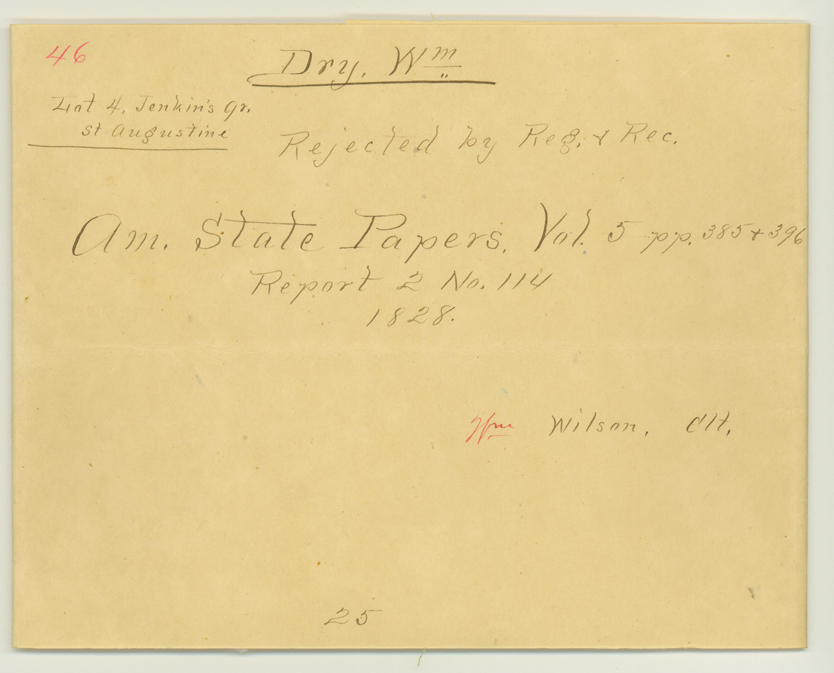 46
Dry, Wm
Lot 4, Jenkin's Gr.
St Augustine
Rejected by Reg. & Rec.
Am. State Papers, Vol. 5 pp. 385 & 396
Report 2 No. 114
1828.
Wm Wilson, Clt.
25